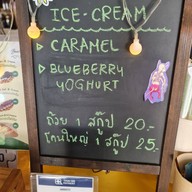 ICE-CREAM
CARAMEL
BLUEBERRY
YOGHURT
ถ้วย 1 สกู๊ป 20.-
โคนใหญ่ 1 สกู๊ป 25.-